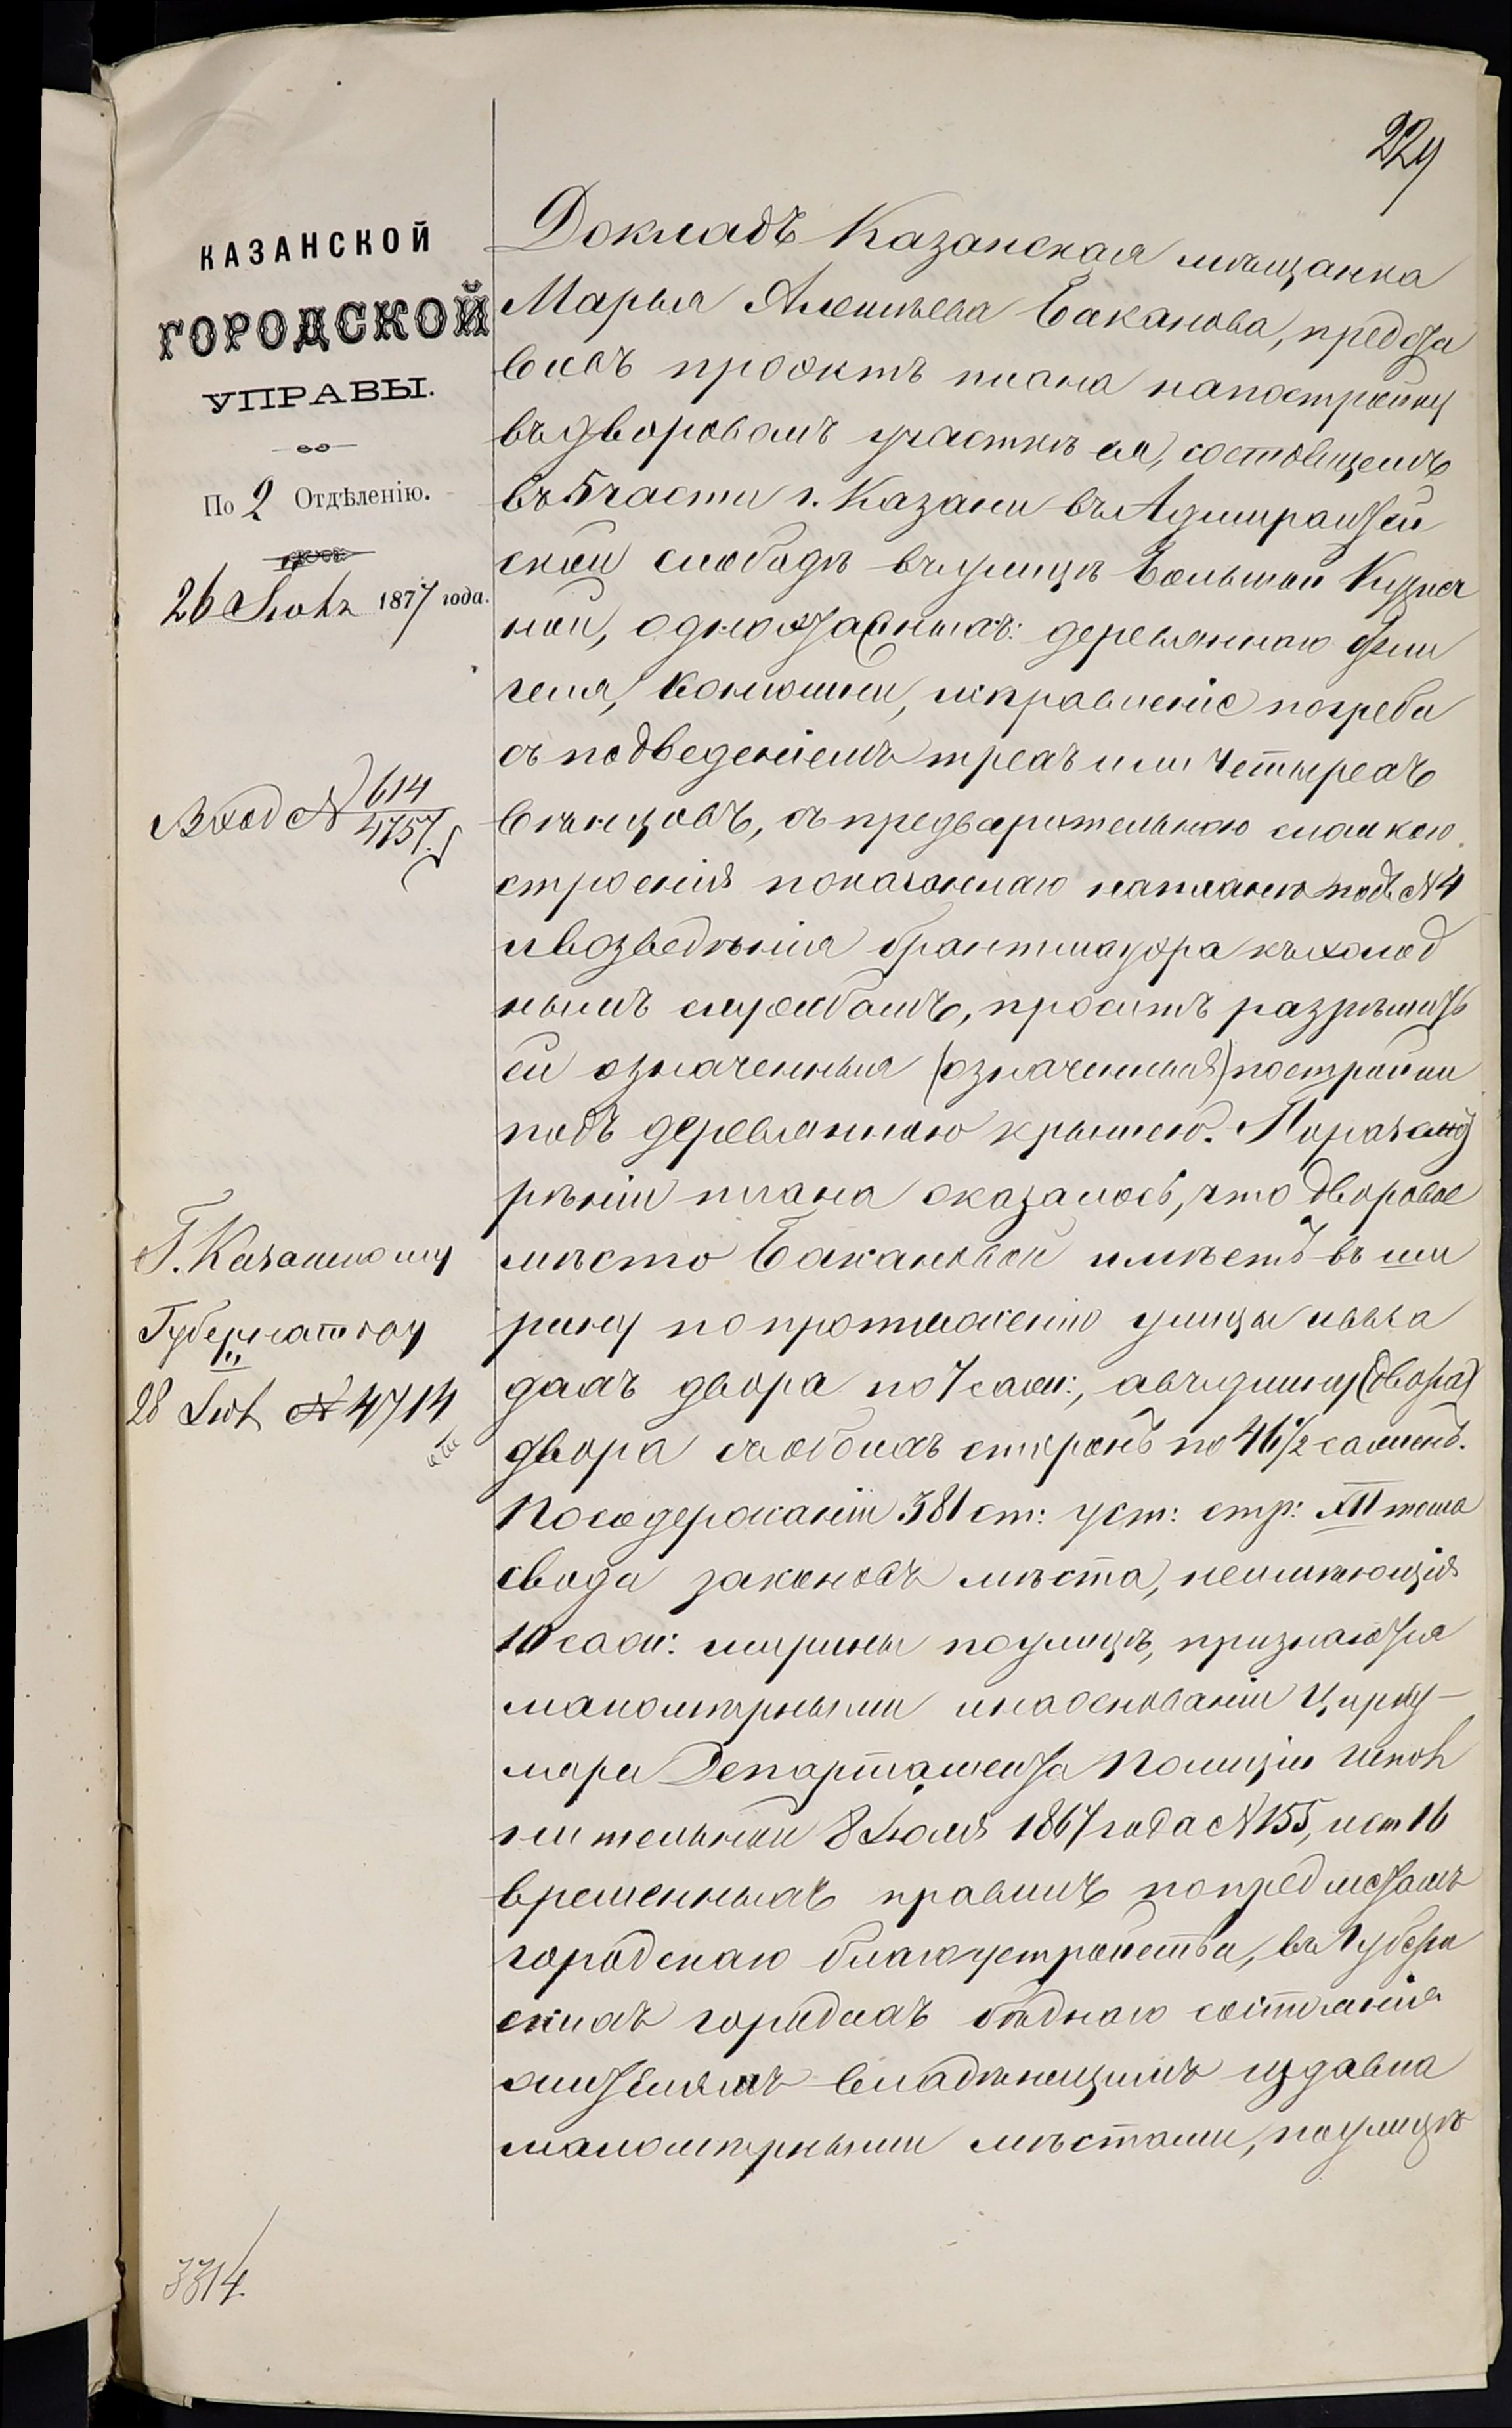 229
КАЗАНСКОЙ
ГОРОДСКОЙ
УПРАВЫ.
По 2 Отдѣленію.
26 Іюля 1877 года.
Вход № 614
4757.
Г. Казанскому
Губернатору
28 Іюл № 4714
3314.
Докладъ Казанская мѣщанка
Марья Алексѣева Баканова, предста
вивъ проэктъ плана на постройку
въ дворовомъ участкѣ ея, состоящемъ
въ 5 части г. Казани въ Адмиралтей
ской слободѣ въ улицѣ Большой Кузнеч
ной, одноэтажныхъ: деревяннаго фли
геля, конюшни, исправленіе погреба
съ подведеніемъ трехъ или четырехъ
вѣнцовъ, съ предварительною сломкою
строенія показаннаго на планѣ подъ № 4
и возведѣнія брантмауэра къ холод
нымъ службамъ, проситъ разрѣшить
ей означенныя (означенныя) постройки
подъ деревянною крышею. По разсмот
рѣніи плана оказалось, что дворовое
мѣсто Бакановой имѣетъ въ ши
рину по протяженію улицы и въ за
дахъ двора по 7 саж:, а въ длину (двора)
двора съ обѣихъ сторонъ по 46½ сажень.
По содержанію 381 ст: уст: стр: XII тома
свода законовъ мѣста, неимѣющія
10 саж: ширины по улицѣ, признаются
маломѣрными и на основаніи Цирку-
ляра Департамента Полиціи Испол
нительной 8 Іюля 1867 года № 155, и ст 16
временныхъ правилъ по предметамъ
городскаго благоустройства, въ Губерн
скихъ городахъ бѣднаго состоянія
жителямъ владѣющимъ издавна
маломѣрными мѣстами, по улицѣ